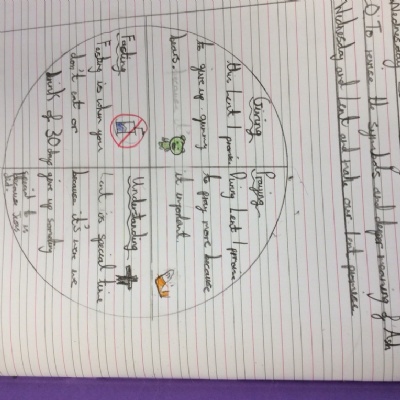 Wednesday
LO To revise the symbols and deeper meaning of Ash
Wednesday and Lent and make our Lent promises
Giving
this Lent I promise
to give up gaming
Praying
During Lent I promise
to pray more because
it important.
Fasting
Fasting is when you
don't eat or
drink of 30 day
Understanding
Lent is special time
because it's were we
give up somthing
special to us